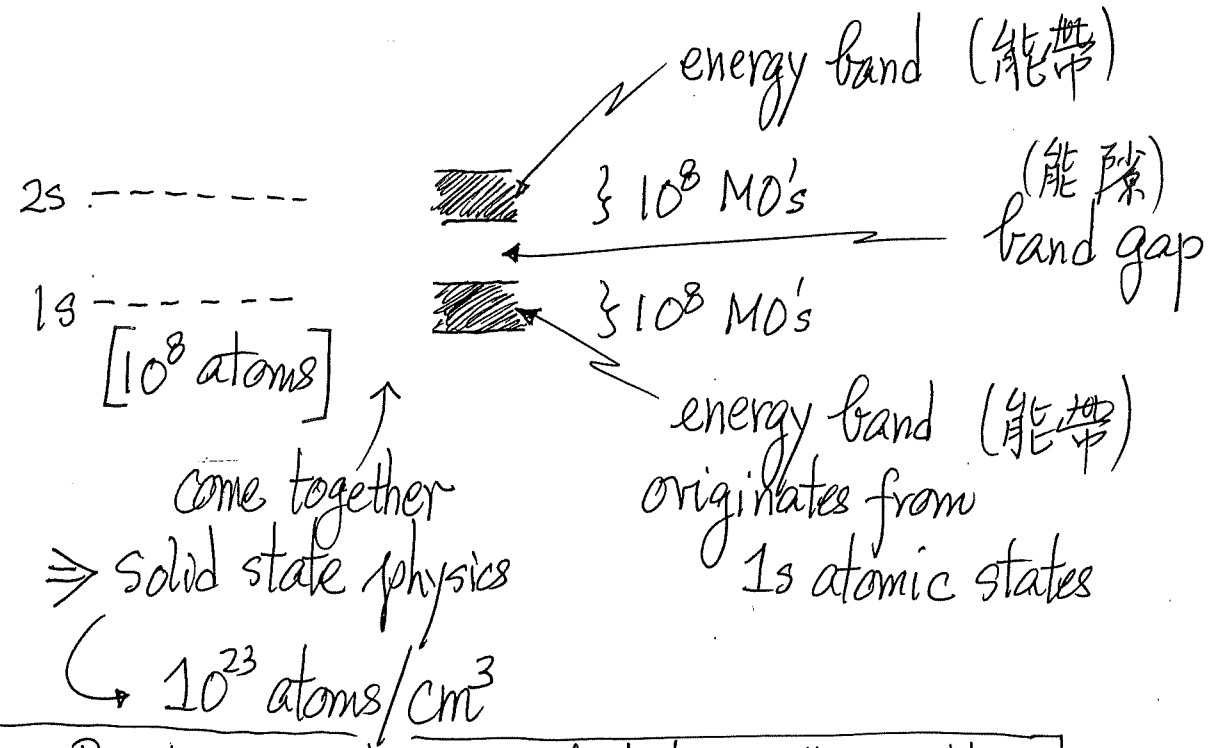 energy band (能帶)
2s
} 10⁸ MO's
(能隙)
band gap
1s
} 10⁸ MO's
[10⁸ atoms]
energy band (能帶)
originates from
1s atomic states
come together
⇒ Solid state physics
10²³ atoms/cm³